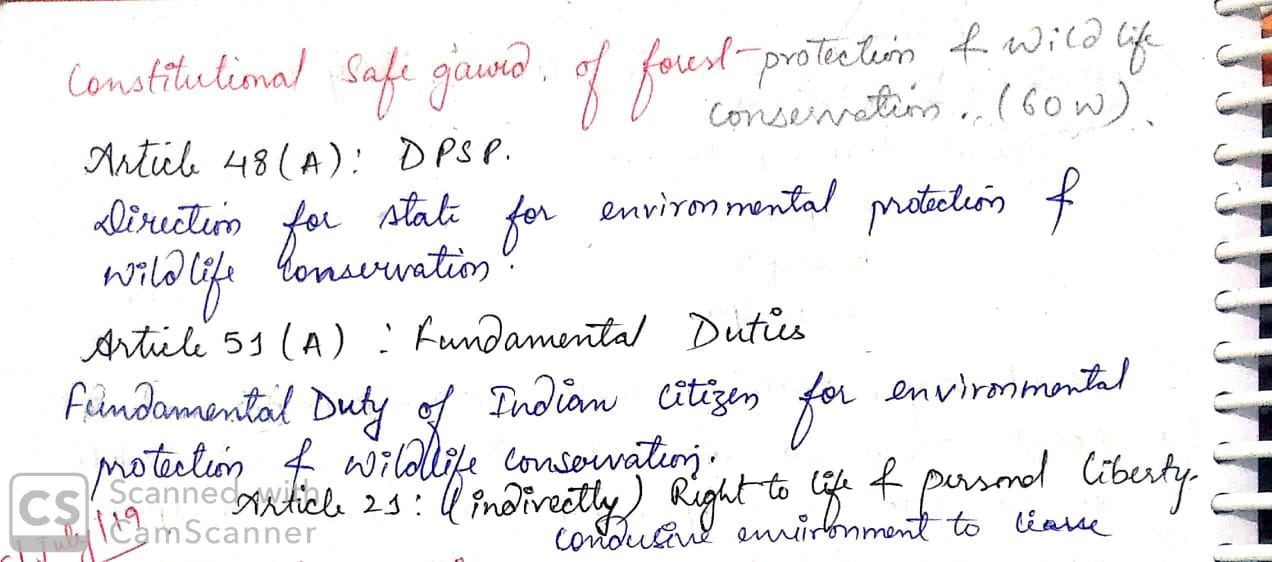 Constitutional Safe gaurd. of forest-protection & wild life
conservation.. (60W).
Article 48(A): DPSP.
Direction for state for environmental protection &
wildlife conservation.
Article 51(A): Fundamental Duties
Fundamental Duty of Indian citizen for environmental
protection & wildlife conservation.
Article 21: (indirectly) Right to life & personal liberty.
condusive environment to
CS Scanned with
CamScanner
July/19